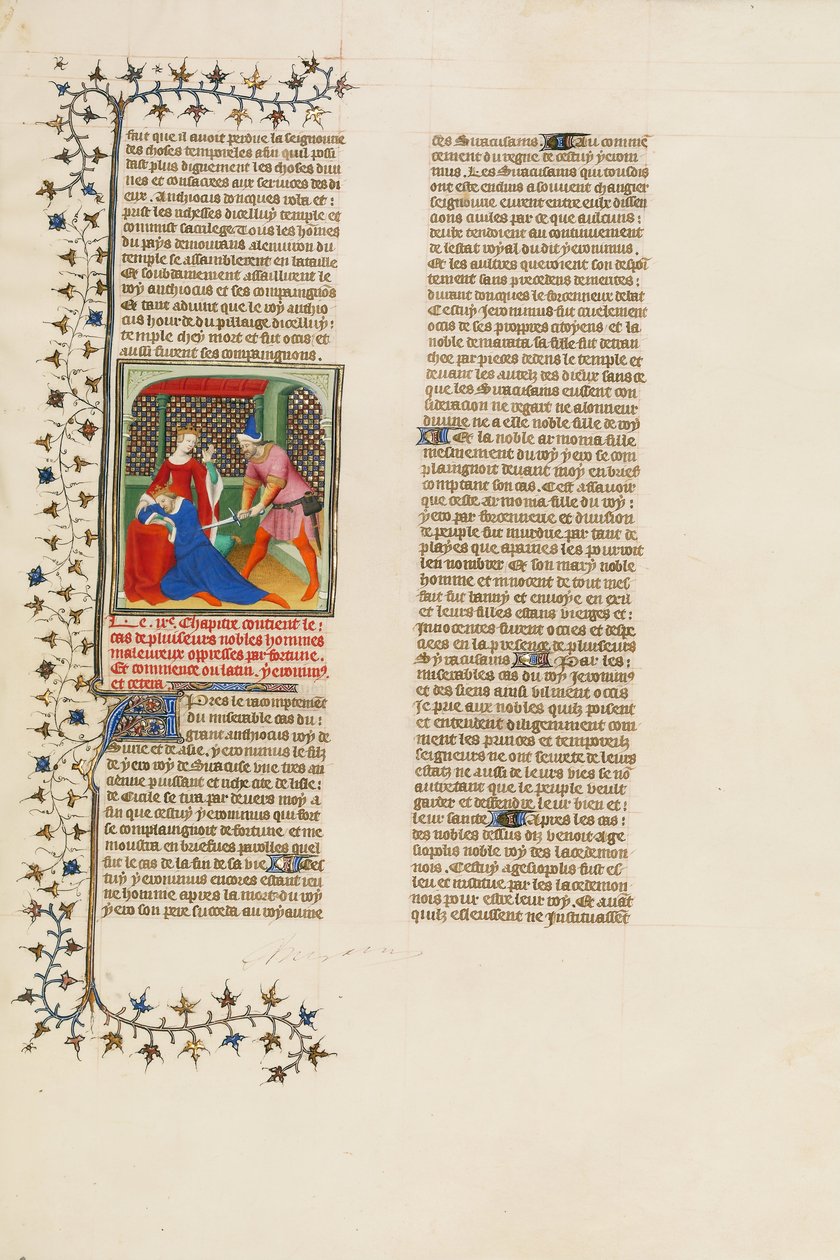 fust que il avoit perdue la seignourie
des choses temporeles afin quil possi
dast plus dignement les choses divi
nes et consacrees aux services des di
eux. Anthiocus doncques vola et :
prist les richesses dicelluy temple et
commist sacrilege. Tous les hommes
du pays demourans alenviron du
temple se assamblerent en bataille
Et soubdainement assaillirent le
roy anthiocus et ses compaignons
Et tant advint que le roy anthio
cus hourde du pillaige dicelluy :
temple chey mort et fut occis et
aussi furent ses compaignons.
Le .ixe. Chapitre contient le :
cas de plusieurs nobles hommes
maleureux oppresses par fortune.
Et commence ou latin. yeronimus.
et cetera.
Apres le racomptement
du miserable cas du :
grant anthiocus roy de
Surie et de asie. yeronimus le filz
de yero roy de Siracuse une tres an
cienne puissant et riche cite de lisle :
de Cicile se tira par devers moy a
fin que cestuy yeronimus qui fort
se complaingnoit de fortune et me
moustra en briefves parolles quel
fut le cas de la fin de sa vie Ces
tuy yeronimus encores estant jeu
ne homme apres la mort du roy
yero son pere succeda au royaume
des Siracusains. Au comme
cement du regne de cestuy yeroni
mus. Les Siracusains qui tousdis
ont este enclins a souvent changier
seignourie eurent entre eulx dissen
cions civiles par ce que aulcuns :
deulx tendoient au continuement
de lestat royal dudit yeronimus.
Et les aultres queroient son despoi
tement sans precedens demerites :
durant doncques le forcenneux debat
Cestuy Jeronimus fut cruelement
occis de ses propres citoyens et la
noble demarata sa fille fut detran
chee par pieces dedens le temple et
devant les autelz des dieux sans ce
que les Siracusains eussent con
sideracion ne regart ne alonneur
divine ne a elle noble fille de roy
Et la noble armonia fille
mesmement du roy yero se com
plaingnoit devant moy en brief
comptant son cas. Cest assavoir
que ceste armonia fille du roy :
yero par forcennerie et division
de peuple fut murdrie par tant de
playes que apaines les pourroit
len nombrer Et son mary noble
homme et innocent de tout mes
fait fut banny et envoye en exil
et leurs filles estans vierges et :
Innocentes furent occies et despe
ciees en la presence de plusieurs
Syracusains Par les :
miserables cas du roy Jeronimus
et des siens ainsi vilment occis
Je prie aux nobles quilz poisent
et entendent diligemment com
ment les princes et temporelz
seigneurs ne ont seurete de leurs
estatz ne aussi de leurs vies se non
autretant que le peuple veult
garder et deffendre leur bien et :
leur sante Apres les cas :
des nobles dessus diz venoit Age
siopolis noble roy des lacedemon
nois. Cestuy agesiopolis fust es
leu et institue par les lacedemon
nois pour estre leur roy. Et avant
quilz esleussent ne Instituassent